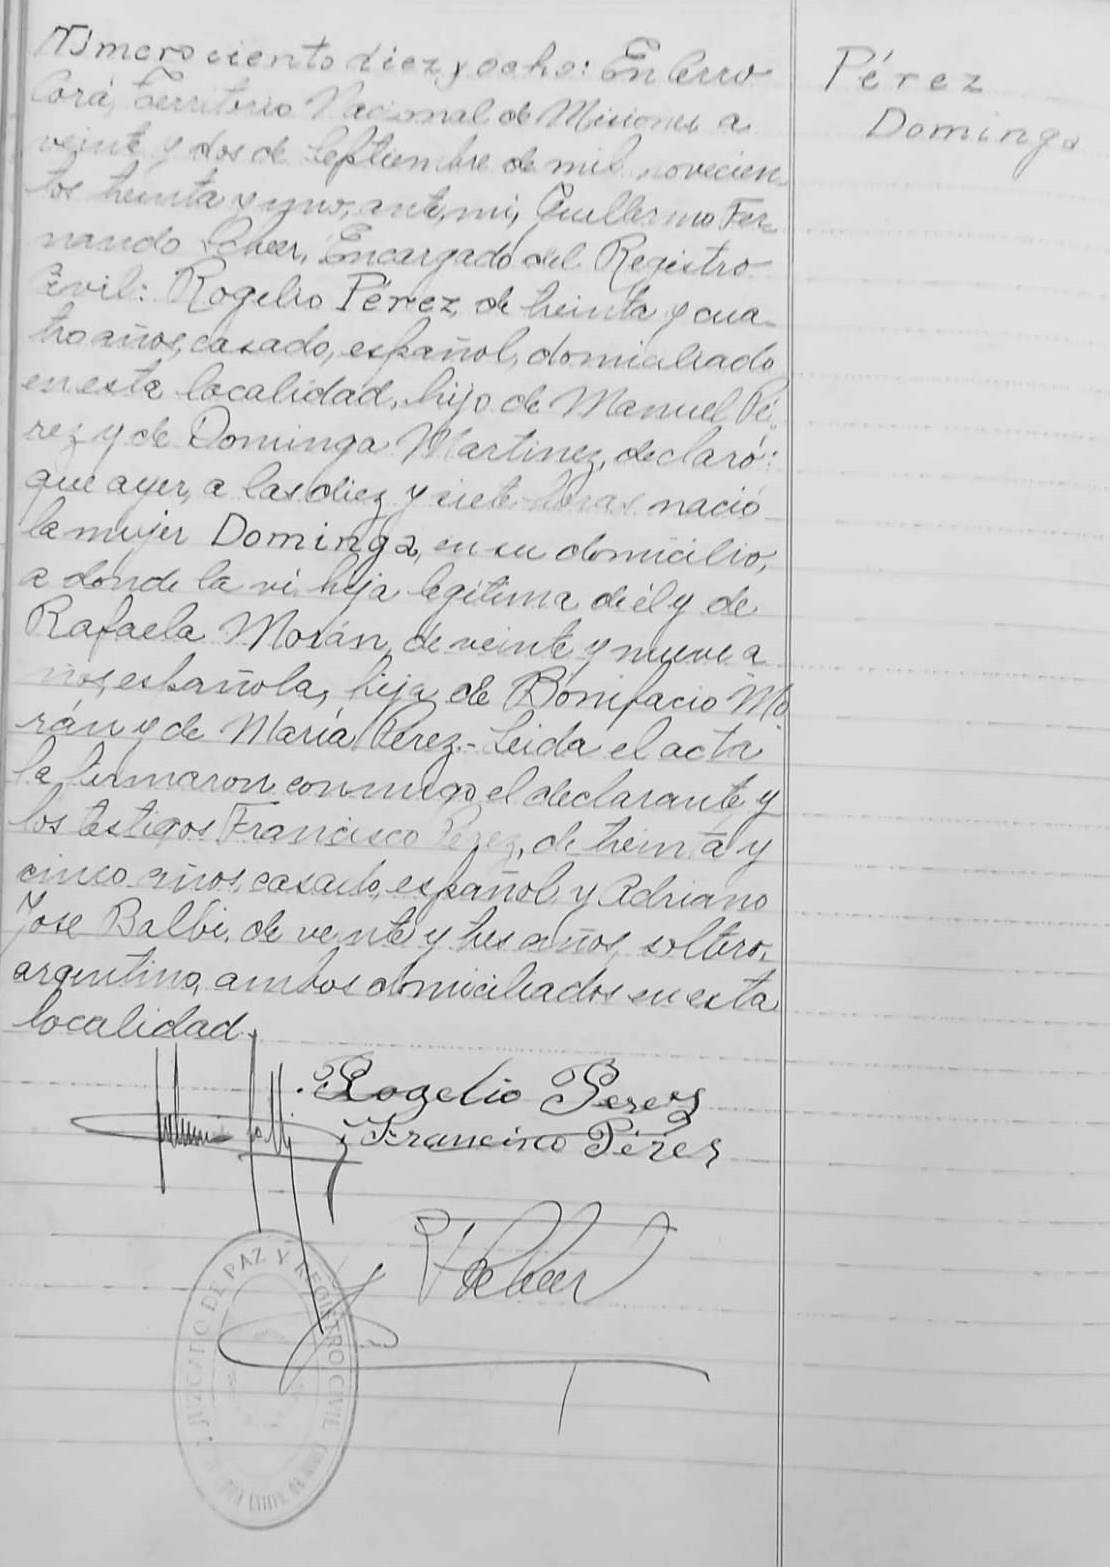 Número ciento diez y ocho: En Cerro
Corá, Territorio Nacional de Misiones a
veinte y dos de Septiembre de mil novecien
tos treinta y uno, ante, mi, Guillermo Fer
nando Scheer, Encargado del Registro
Civil: Rogelio Pérez, de treinta y cua
tro años, casado, español, domiciliado
en esta localidad, hijo de Manuel Pé
rez y de Dominga Martinez, declaró:
que ayer, a las diez y siete horas nació
la mujer Dominga, en su domicilio,
a donde la ví hija legítima de él y de
Rafaela Morán, de veinte y nueve a
ños, española, hija de Bonifacio Mo
rán y de María Pérez.- Leida el acta
la firmaron conmigo el declarante y
los testigos Francisco Pérez, de treinta y
cinco años, casado, español, y Adriano
José Balbi, de veinte y tres años, soltero,
argentino, ambos domiciliados en esta
localidad.
Rogelio Perez
Francisco Pérez
JUZGADO DE PAZ Y REGISTRO CIVIL
Pérez
Dominga